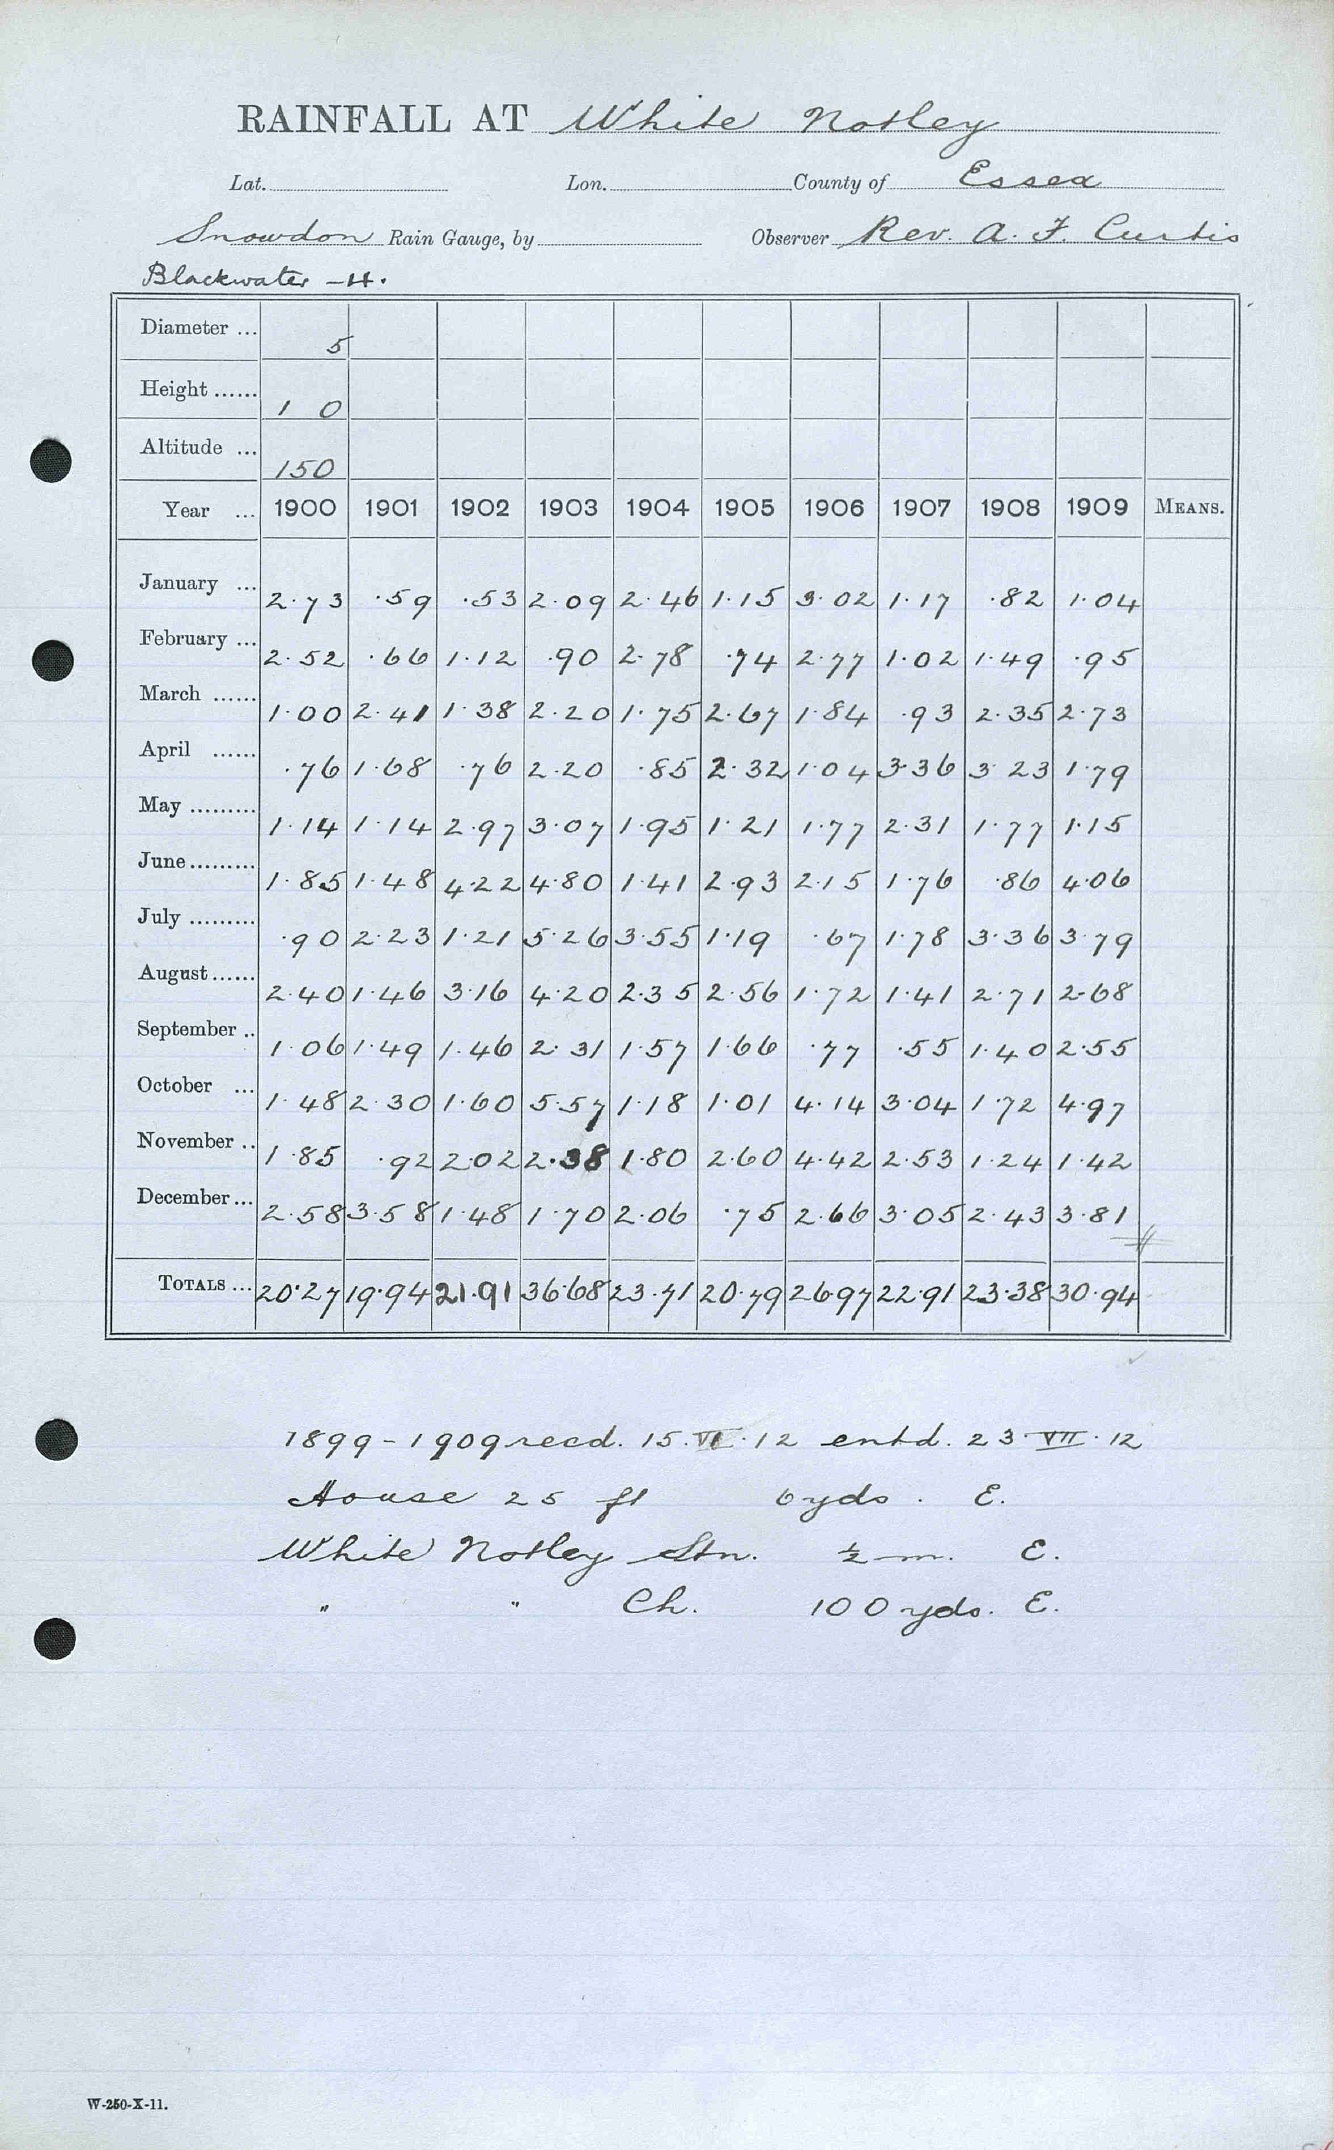 RAINFALL AT White Notley
Lat. Lon. County of Essex
Snowdon Rain Gauge, by Observer Rev. A. F. Curtis
Blackwater - H.
Diameter ... 5
Height ...... 1 0
Altitude ... 150
Year ... 1900 1901 1902 1903 1904 1905 1906 1907 1908 1909 MEANS.
January ... 2.73 .59 .53 2.09 2.46 1.15 3.02 1.17 .82 1.04
February ... 2.52 .66 1.12 .90 2.78 .74 2.77 1.02 1.49 .95
March ...... 1.00 2.41 1.38 2.20 1.75 2.67 1.84 .93 2.35 2.73
April ...... .76 1.68 .76 2.20 .85 2.32 1.04 3.36 3.23 1.79
May ......... 1.14 1.14 2.97 3.07 1.95 1.21 1.77 2.31 1.77 1.15
June ......... 1.85 1.48 4.22 4.80 1.41 2.93 2.15 1.76 .86 4.06
July ......... .90 2.23 1.21 5.26 3.55 1.19 .67 1.78 3.36 3.79
August ...... 2.40 1.46 3.16 4.20 2.35 2.56 1.72 1.41 2.71 2.68
September .. 1.06 1.49 1.46 2.31 1.57 1.66 .77 .55 1.40 2.55
October ... 1.48 2.30 1.60 5.57 1.18 1.01 4.14 3.04 1.72 4.97
November .. 1.85 .92 2.02 2.38 1.80 2.60 4.42 2.53 1.24 1.42
December ... 2.58 3.58 1.48 1.70 2.06 .75 2.66 3.05 2.43 3.81
TOTALS ... 20.27 19.94 21.91 36.68 23.71 20.79 26.97 22.91 23.38 30.94
1899 - 1909 recd. 15.VI.12 entd. 23.VII.12
House 25 ft 6 yds. E.
White Notley Stn. ½ m. E.
" " Ch. 100 yds. E.
W-250-X-11.